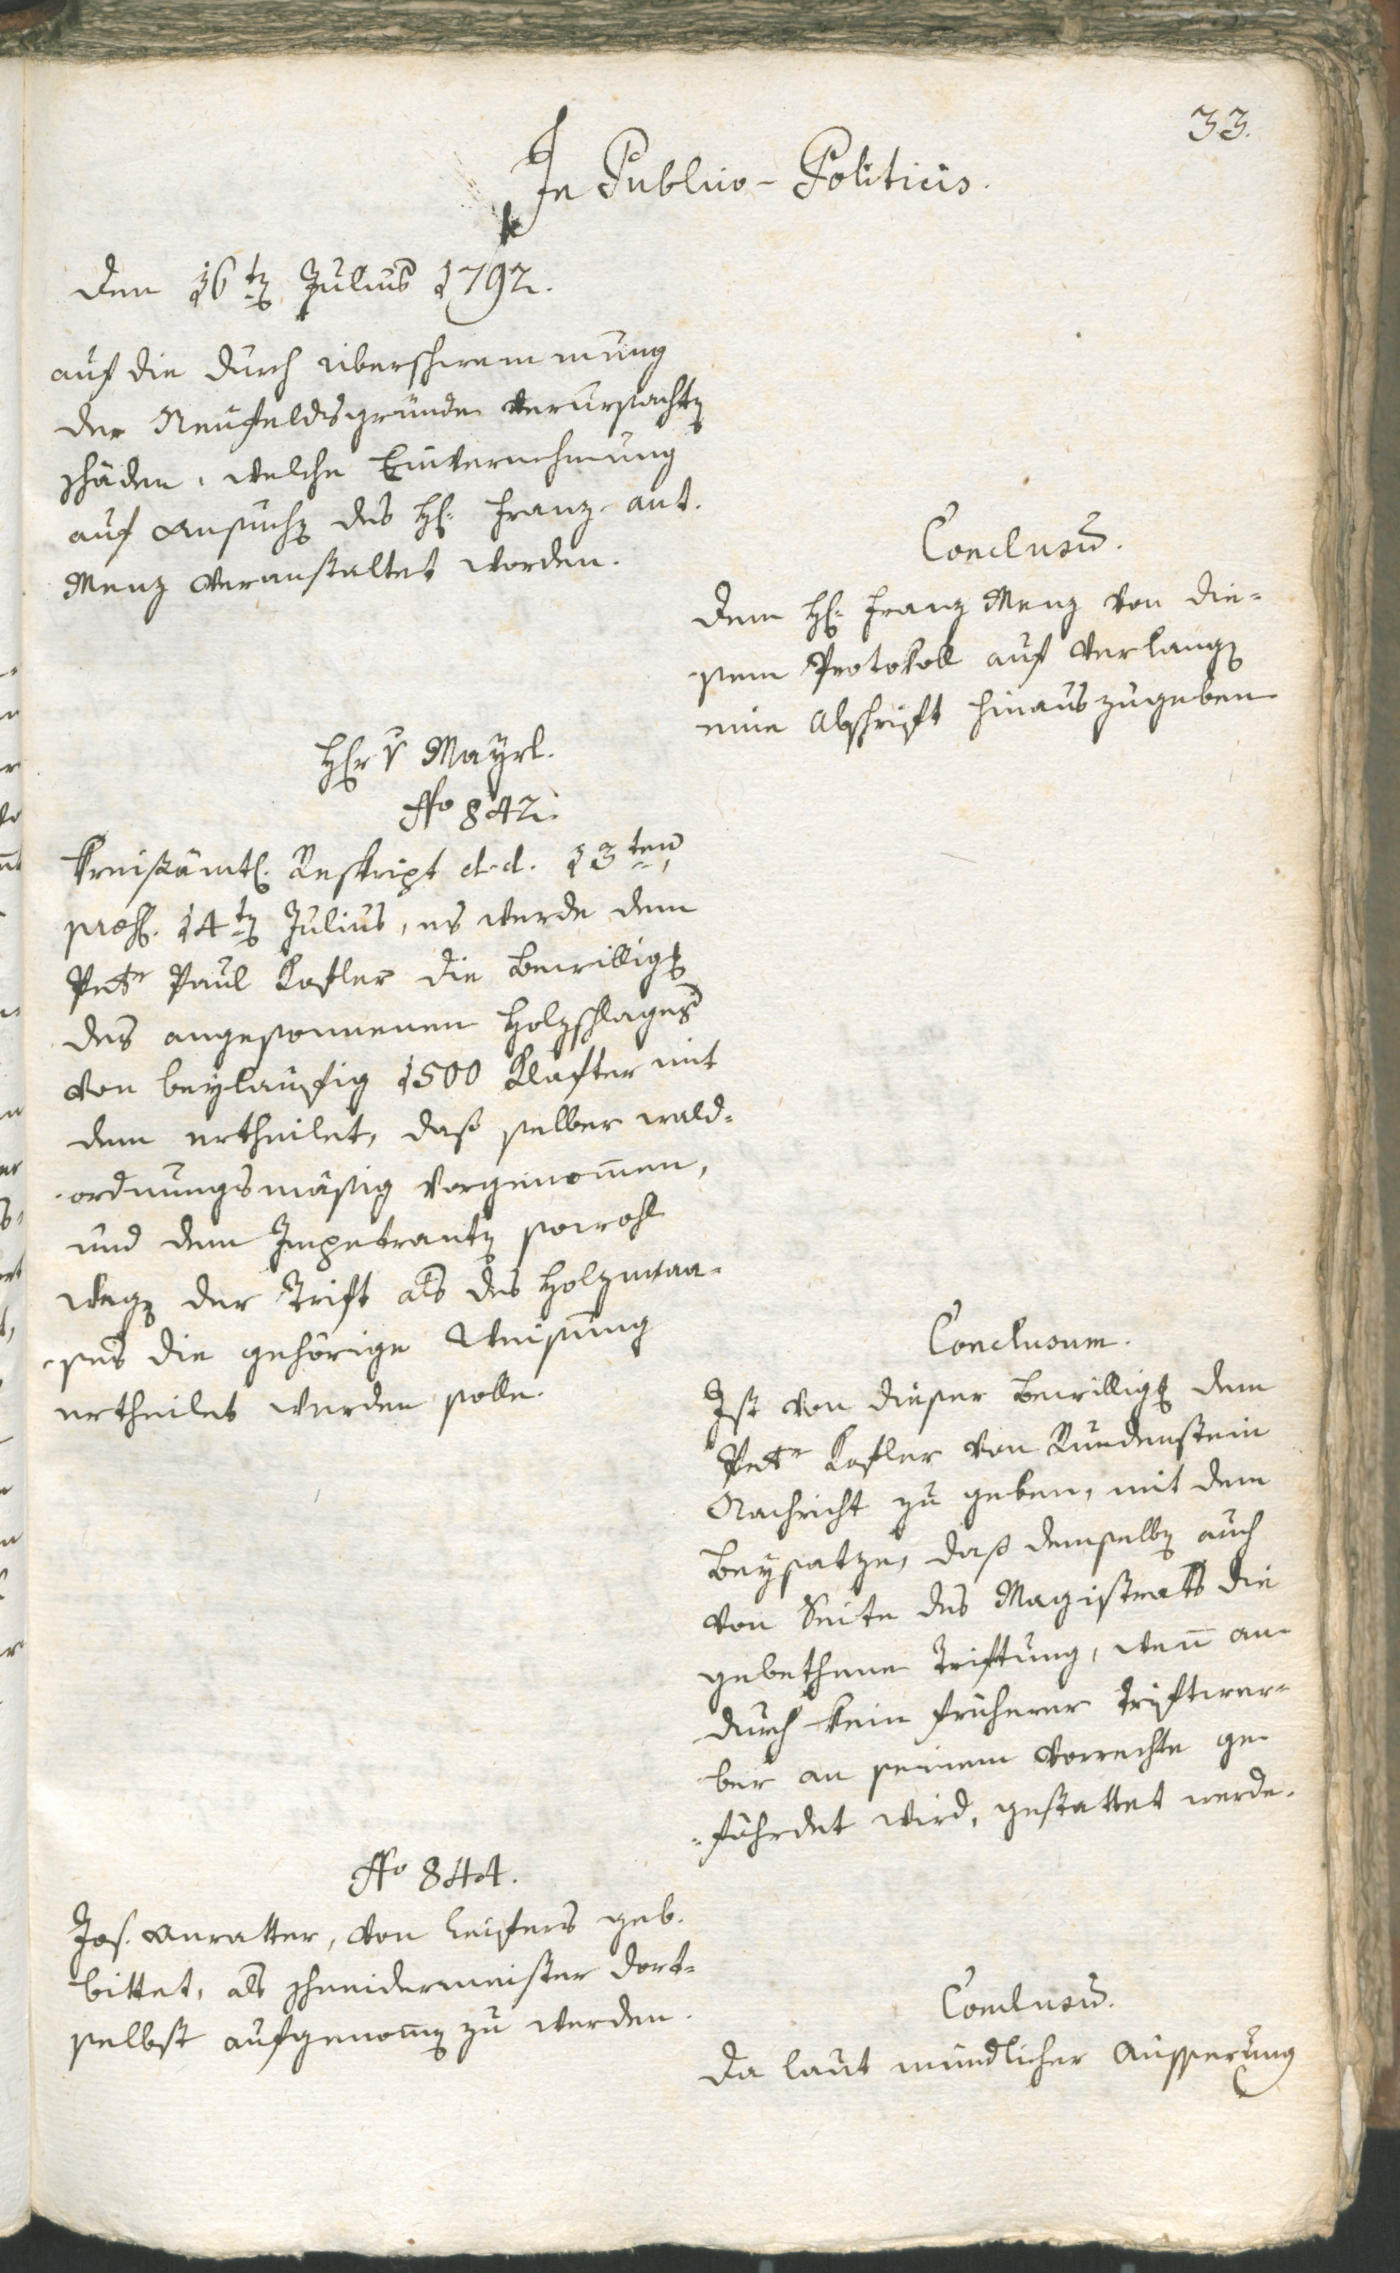 33.
In Publico-Politicis.
Den 16ten Julius 1792.
auf die durch Uiberschwemmung
der Neufeldsgründe verursachten
schäden, welche Einvernehmung
auf Ansuchen des H: Franz Ant.
Menz veranstaltet worden.
Conclusum.
Dem H: Franz Menz von die-
sem Protokoll auf Verlangen
eine Abschrift hinauszugeben
Hr v Mayrl.
No 842.
Kreisämtl. Reskript d.d. 13ten,
præs. 14ten Julius, es werde dem
Peter Paul Kofler die Bewilligung
des angesonnenen Holzschlages
von beyläufig 1500 Klafter mit
dem ertheilet, daß selber wald-
ordnungsmäßig vorgenommen,
und dem Impetranten sowohl
wegen der Trift als des Holzmaa-
ses die gehörige Weisung
ertheilet werden solle.
Conclusum.
Ist von dieser Bewilligung dem
Peter Kofler von Rundenstein
Nachricht zu geben, mit dem
Beysatze, daß demselben auch
von Seite des Magistrats die
gebethene Triftung, wenn an-
durch kein früherer Triftwer-
ber an seinem Vorrechte ge-
fährdet wird, gestattet werde.
No 844.
Jos. Anratter, von Leifers geb.
bittet, als schneidermeister dort-
selbst aufgenommen zu werden.
Conclusum.
Da laut mündlicher Äusserung